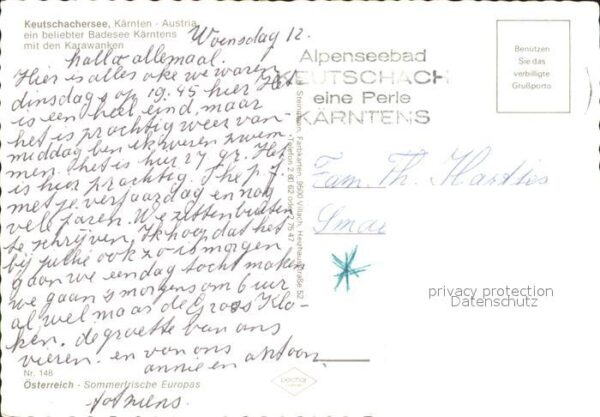 Keutschachersee, Kärnten - Austria
ein beliebter Badesee Kärntens
mit den Karawanken
Woensdag 12.
hallo allemaal.
Hier is alles oke we waren
dinsdags op 19.45 hier Het
is een heel eind, maar
het is prachtig weer van-
middag ben ik wezen zwem
men. het is hier 27 gr. Het
is hier prachtig. The p.f.
met je verjaardag en nog
vele jaren. We zitten buiten
te schrijven. Ik hoop dat het
bij jullie ook zo is morgen
gaan we een dag tocht maken
we gaan smorgens om 6 uur
al wel maar de Gross Klo-
ken. de groetten van ons
vieren. en van ons
annie en antoon
Nr. 148
Österreich - Sommerfrische Europas
Alpenseebad
KEUTSCHACH
eine Perle
KÄRNTENS
Benützen
Sie das
verbilligte
Grußporto
Farbkarten, 9500 Villach, Heidenfeldstraße 52
Telefon 2 60 62 oder 2 75 47
Fam. Th. Harties
privacy protection
Datenschutz